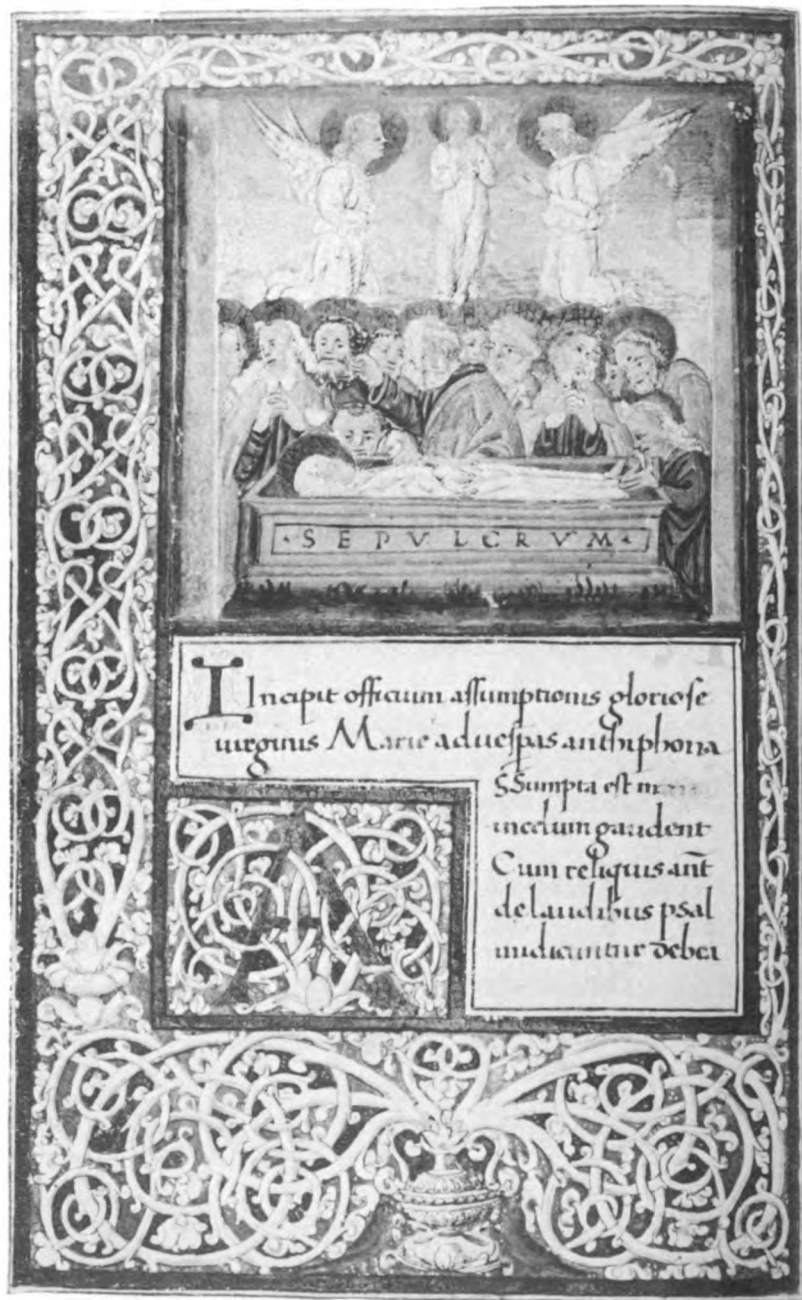 · S E P V L C R V M ·
I Incipit officium assumptionis gloriose
uirginis Marie ad uespas anthiphona
A SSumpta est
incelum gaudent
Cum reliquis ant̄
de laudibus psal